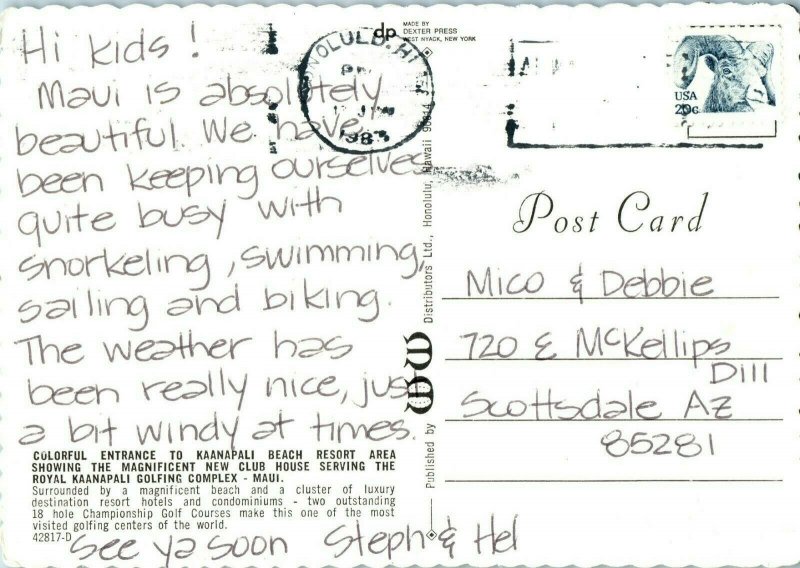 Hi kids !
Maui is absolutely
beautiful. We have
been keeping ourselves
quite busy with
snorkeling, swimming,
sailing and biking.
The weather has
been really nice, just
a bit windy at times.
COLORFUL ENTRANCE TO KAANAPALI BEACH RESORT AREA
SHOWING THE MAGNIFICENT NEW CLUB HOUSE SERVING THE
ROYAL KAANAPALI GOLFING COMPLEX - MAUI.
Surrounded by a magnificent beach and a cluster of luxury
destination resort hotels and condominiums - two outstanding
18 hole Championship Golf Courses make this one of the most
visited golfing centers of the world.
42817-D
See ya soon Steph & Hel
dp
MADE BY
DEXTER PRESS
WEST NYACK, NEW YORK
HONOLULU, HI
PM
1983
USA
20c
Published by
Distributors Ltd., Honolulu, Hawaii 96814
Post Card
Mico & Debbie
720 E McKellips
D111
Scottsdale AZ
85281